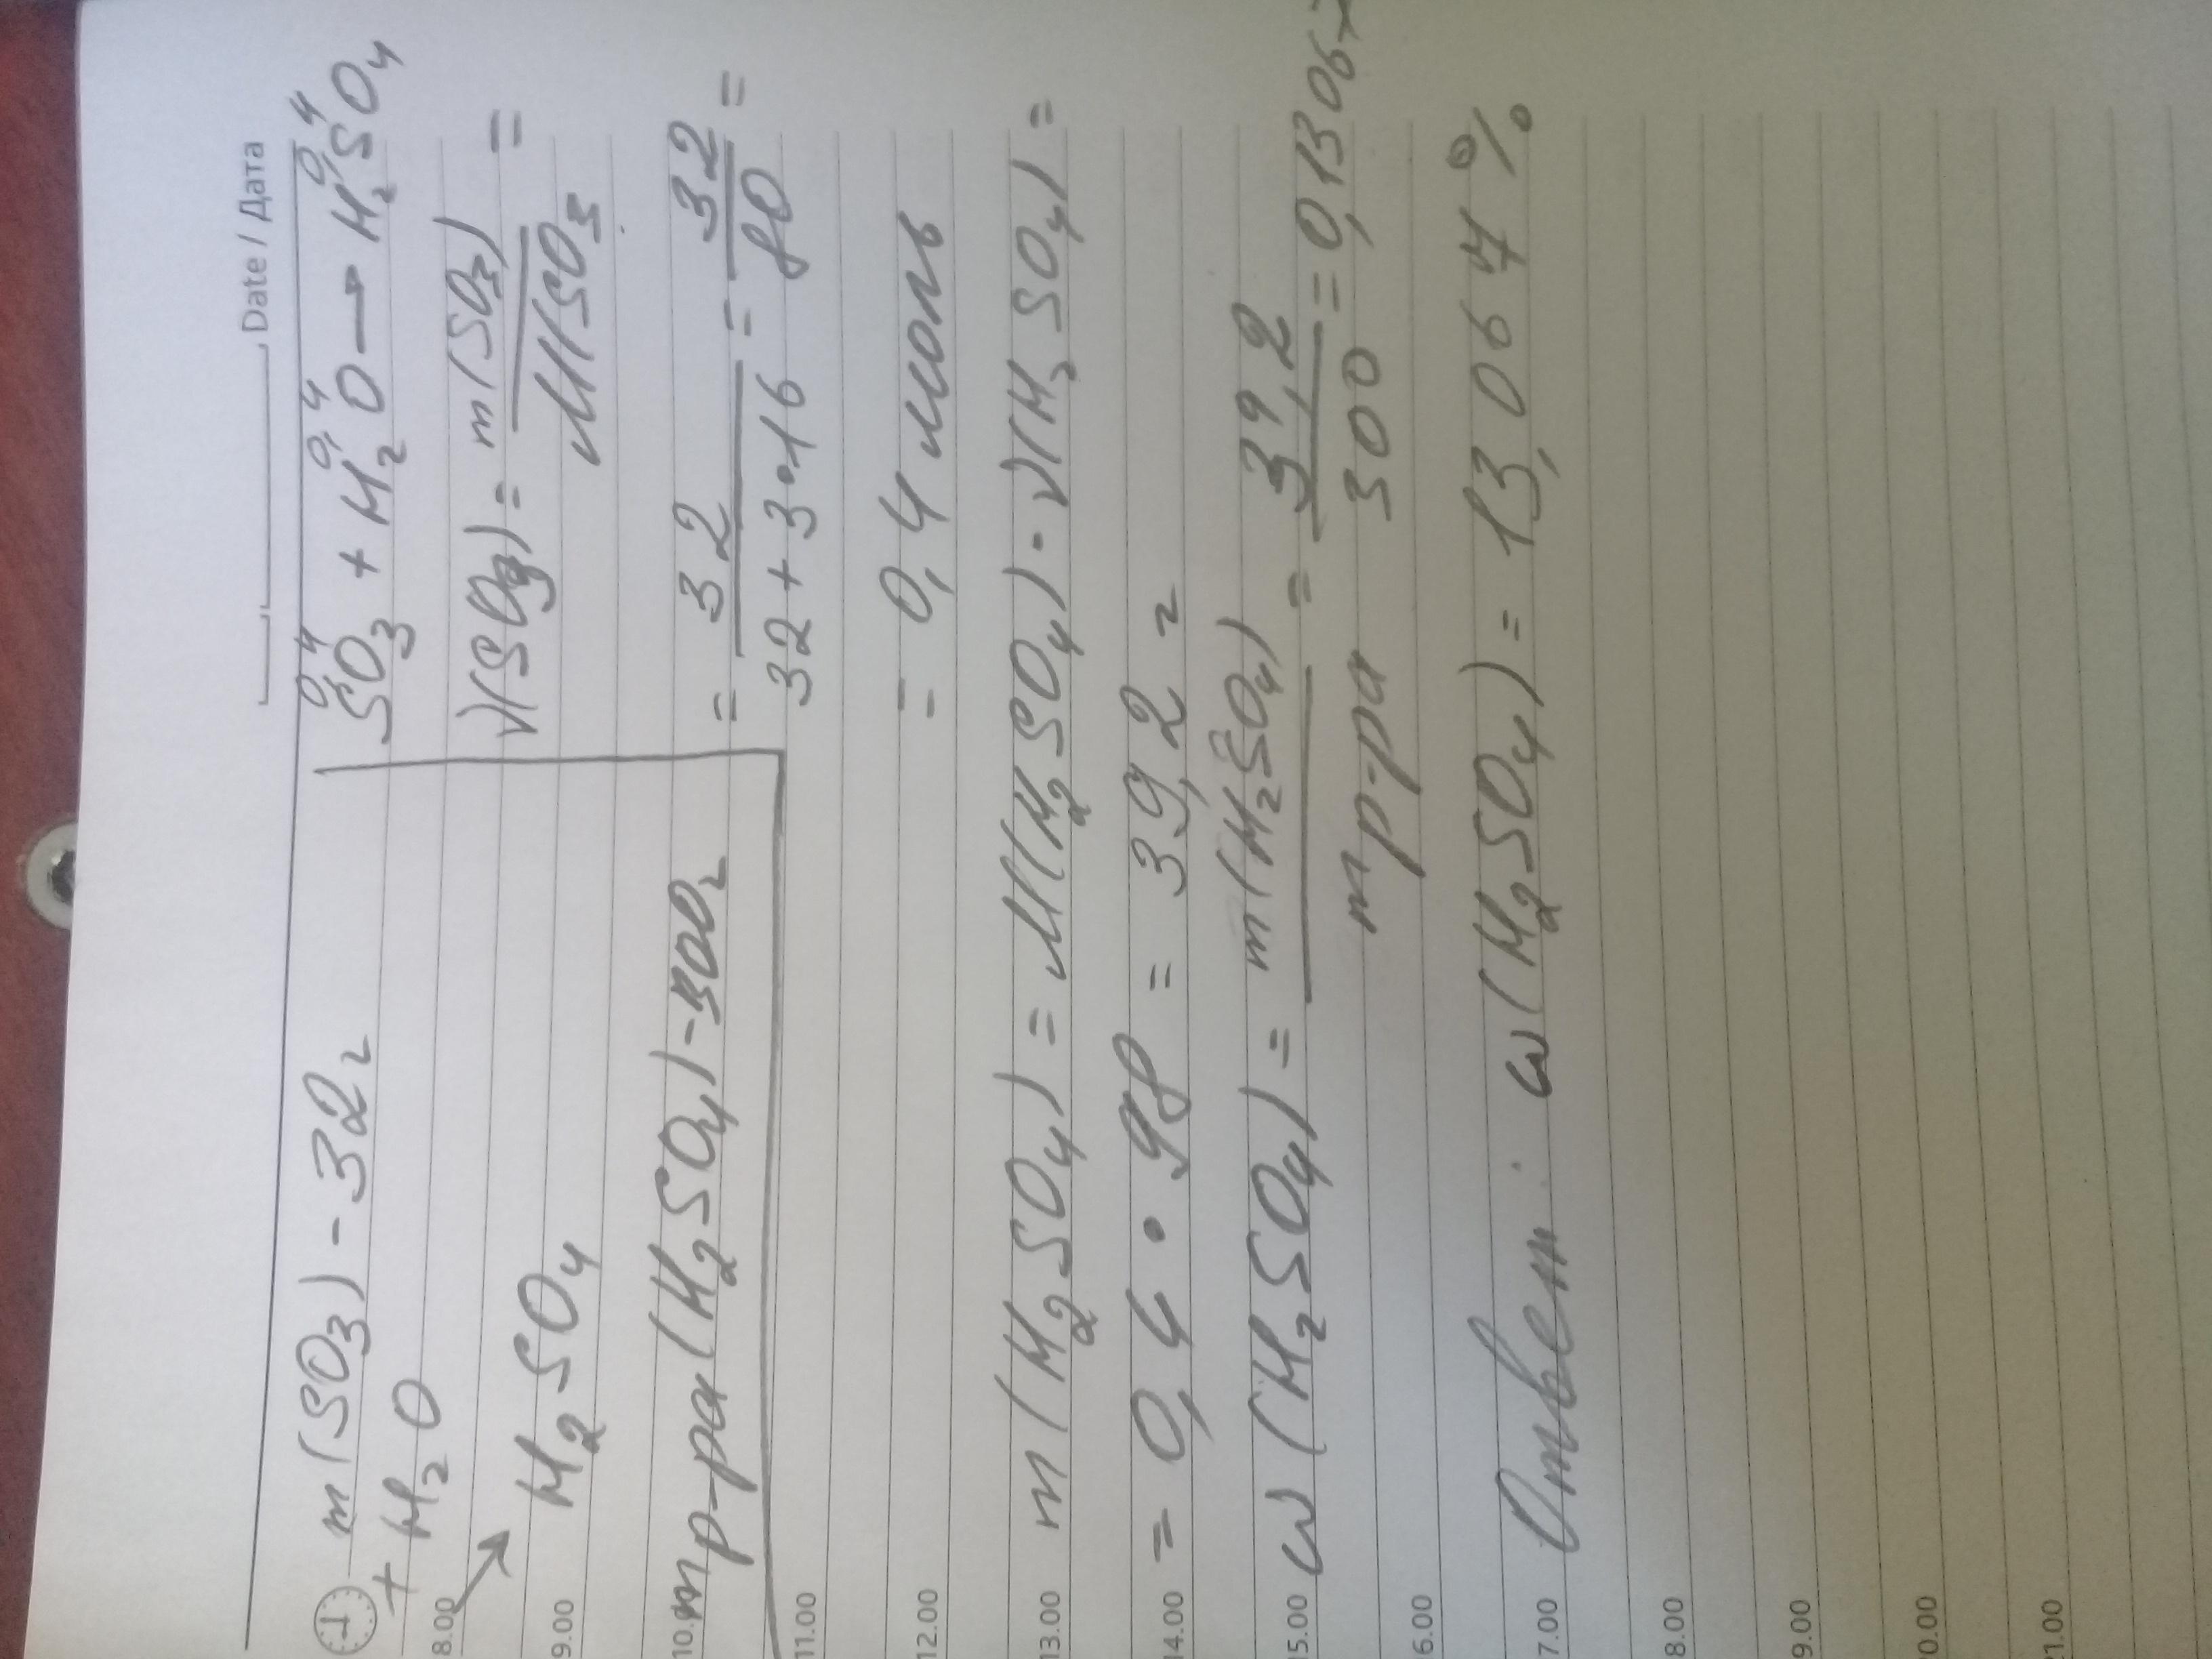 Date / Дата
m(SO3) - 32г
+ H2O
H2SO4
m р-ра (H2SO4) - 300г
0,4 0,4 0,4
SO3 + H2O → H2SO4
ν(SO3) = m(SO3) / M(SO3 =
= 32 / 32 + 3•16 = 32 / 80 =
= 0,4 моль
m(H2SO4) = M(H2SO4) · ν(H2SO4) =
= 0,4 • 98 = 39,2 г
ω(H2SO4) = m(H2SO4) / m р-ра = 39,2 / 300 = 0,1306
Ответ: ω(H2SO4) = 13,067%
8.00
9.00
10.
11.00
12.00
13.00
14.00
15.00
6.00
7.00
8.00
9.00
0.00
1.00